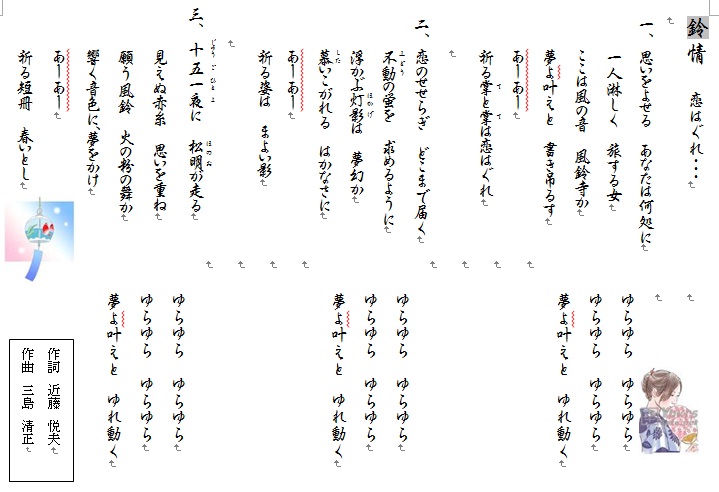 鈴情　恋はぐれ・・・
一、思いをよせる　あなたは何処に
一人淋しく　旅する女
ここは風の音　風鈴寺か
夢よ叶えと　書き吊るす
あーあー
祈る掌と掌は恋はぐれ
ゆらゆら　ゆらゆら
ゆらゆら　ゆらゆら
夢よ叶えと　ゆれ動く
二、恋のせせらぎ　どこまで届く
不動の蛍を　求めるように
浮かぶ灯影は　夢幻か
慕いこがれる　はかなさに
あーあー
祈る姿は　まよい影
ゆらゆら　ゆらゆら
ゆらゆら　ゆらゆら
夢よ叶えと　ゆれ動く
三、十五一夜に　松明が走る
見えぬ赤糸　思いを重ね
願う風鈴　火の粉の舞か
響く音色に、夢をかけ
あーあー
祈る短冊　春いとし
ゆらゆら　ゆらゆら
ゆらゆら　ゆらゆら
夢よ叶えと　ゆれ動く
作詞　近藤　悦夫
作曲　三島　清正